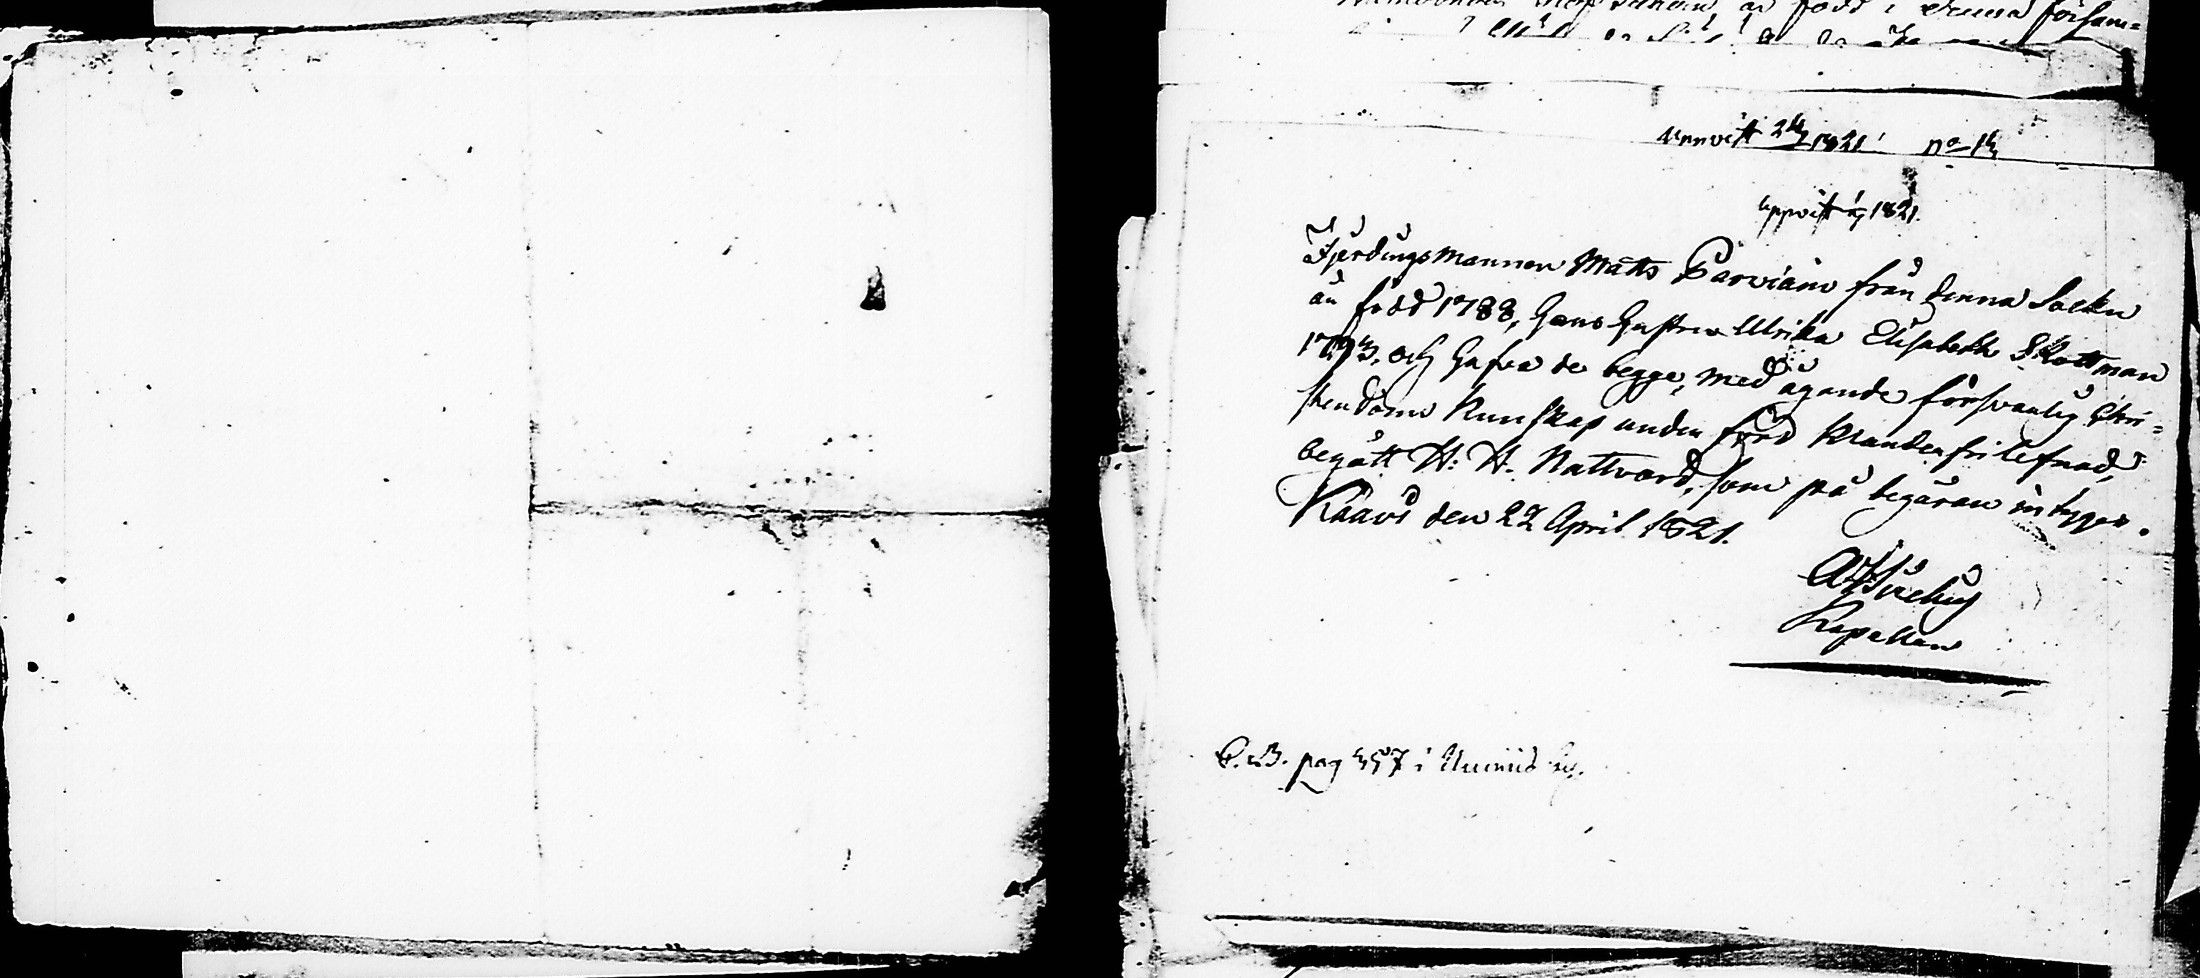 är född i denna försam=
uppvist 1821 No 14
uppvist 1821.
Fjerdingsmannen Matts Parviain från denna Sockn
är född 1788, hans hustru Ulrika Elisabeth Skottman
1793, och hafva de begge, med ägande försvarlig Chri=
stendoms Kunskap under förd klanderfri lefnad,
begått H: H. Nattvard, som på begäran intygas.
Kaavi den 22 April 1821.
Kapellan
C.B. pag 457 i by.